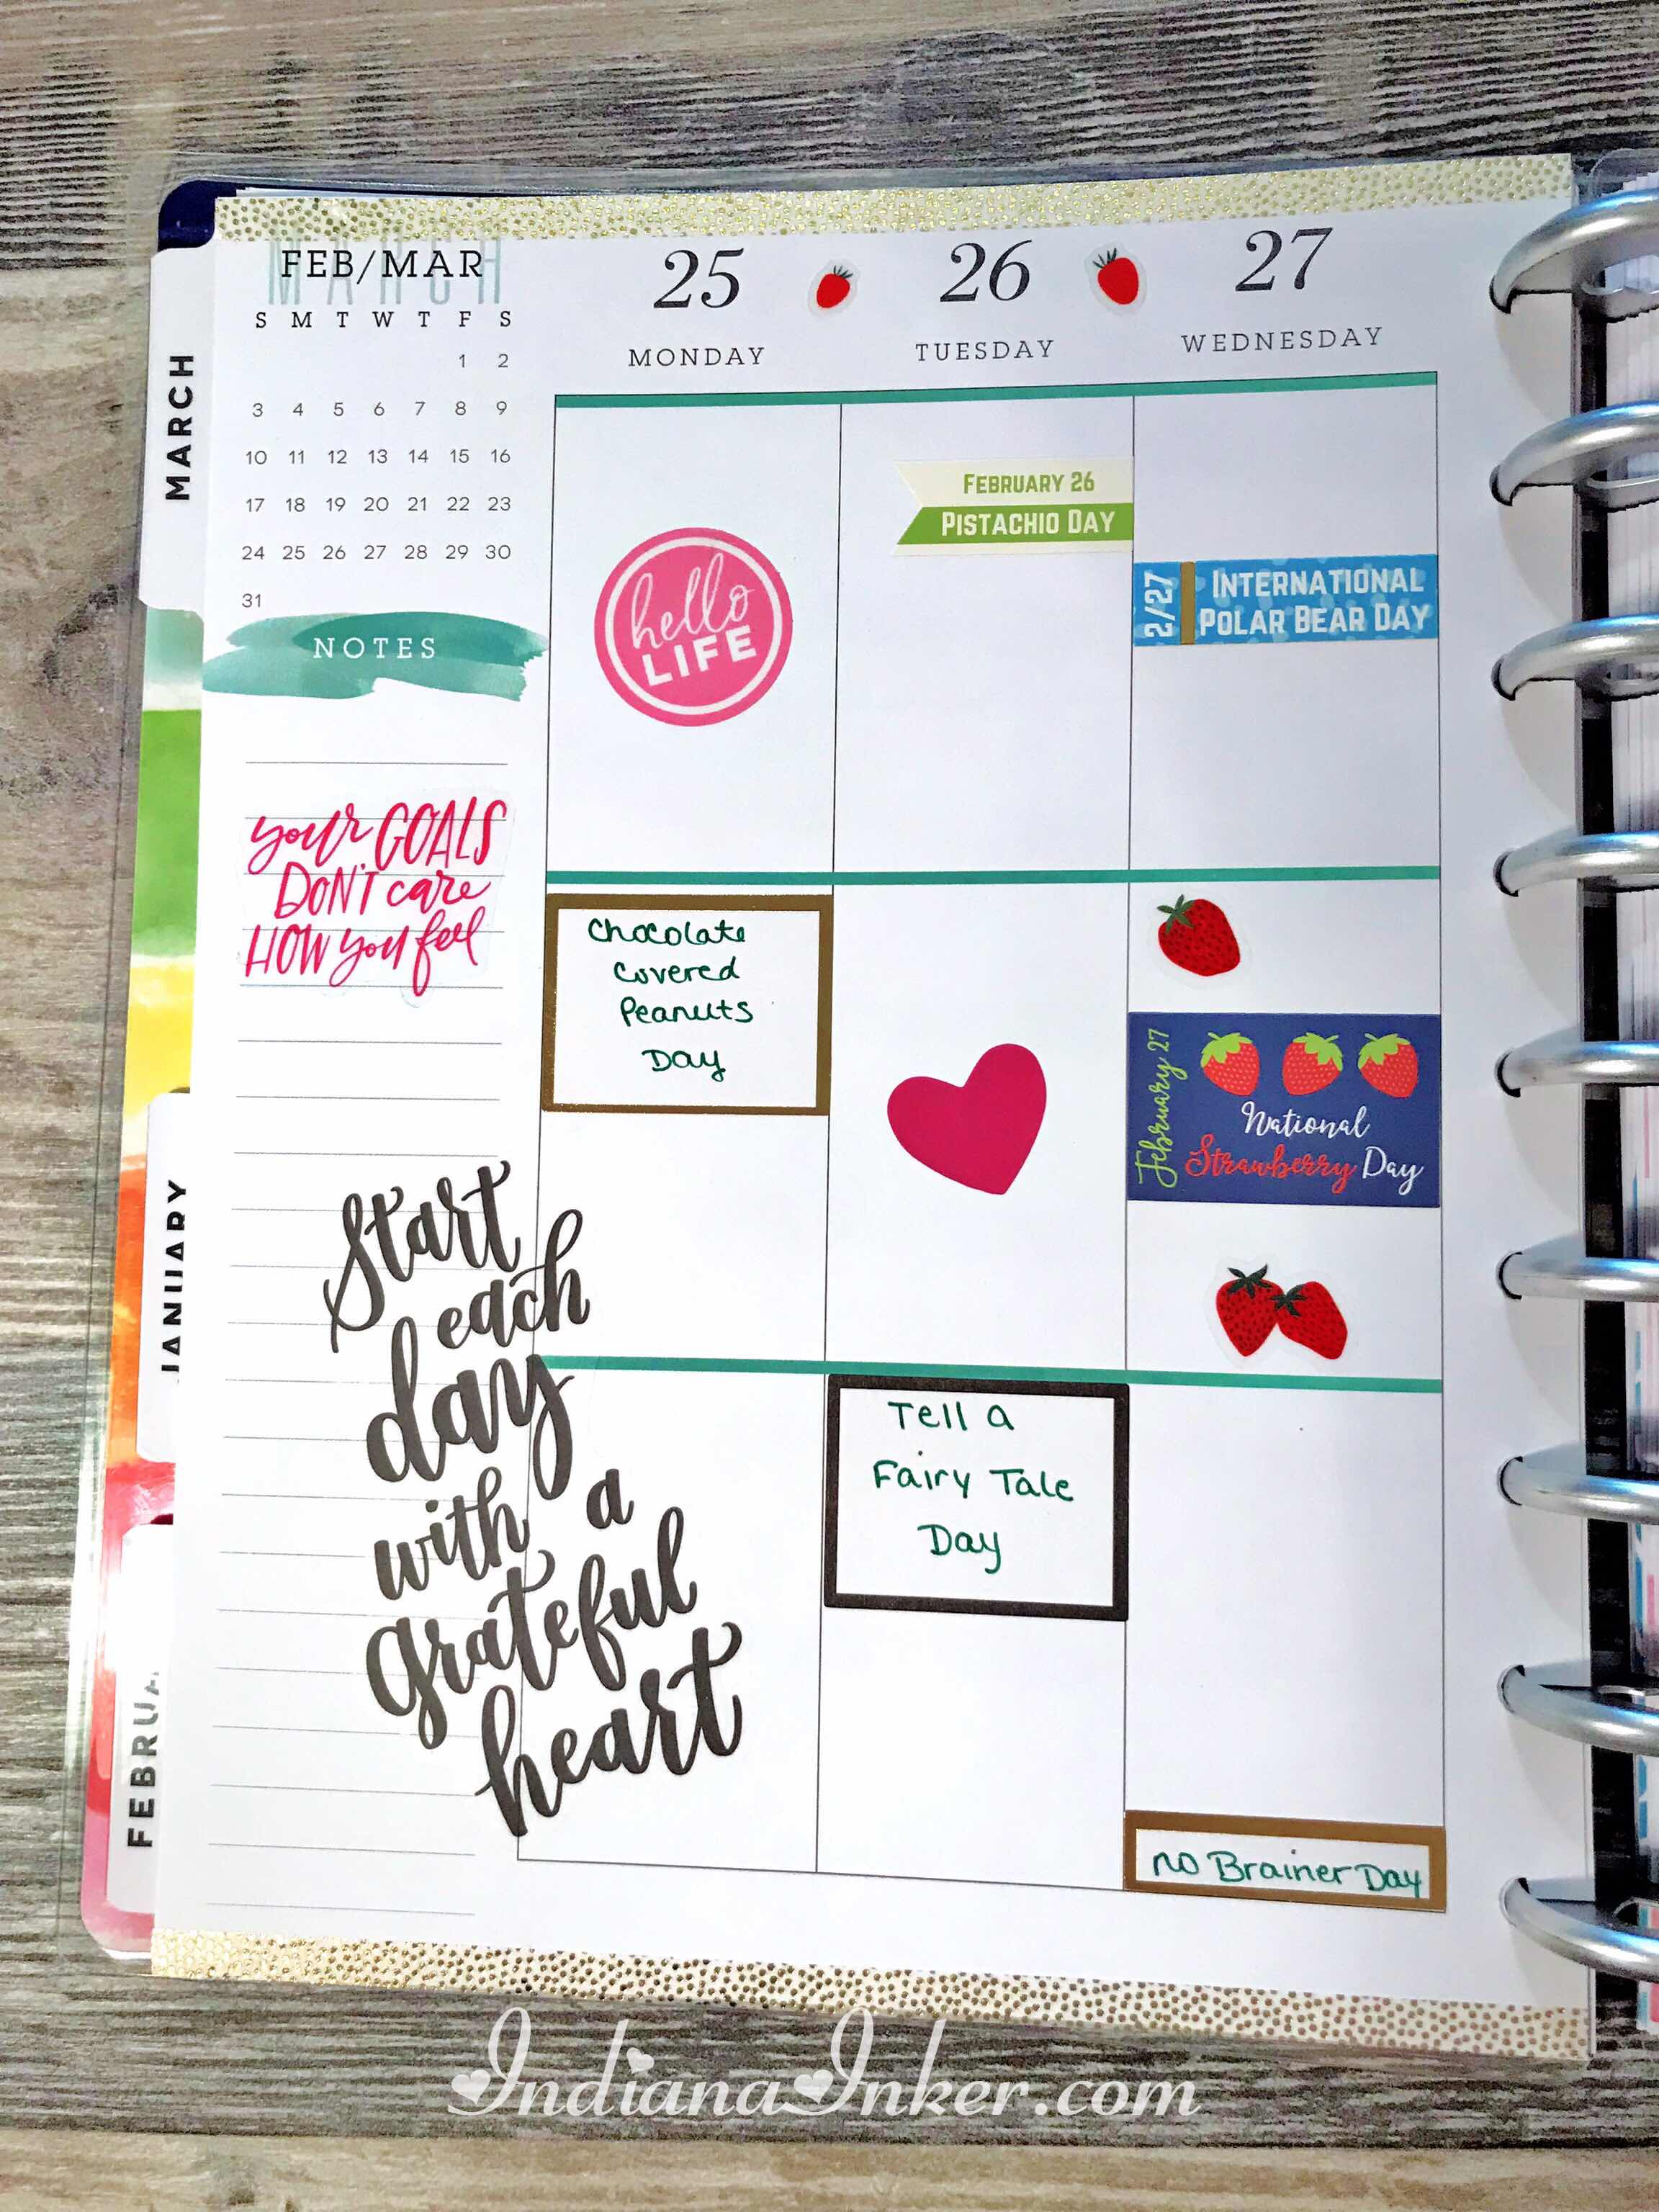 MARCH
FEB/MAR
S M T W T F S
1 2
3 4 5 6 7 8 9
10 11 12 13 14 15 16
17 18 19 20 21 22 23
24 25 26 27 28 29 30
31
NOTES
your GOALS
DON'T care
HOW you feel
Start
each
day
with a
grateful
heart
25
MONDAY
hello
LIFE
Chocolate
Covered
Peanuts
Day
26
TUESDAY
FEBRUARY 26
PISTACHIO DAY
Tell a
Fairy Tale
Day
27
WEDNESDAY
2/27
INTERNATIONAL
POLAR BEAR DAY
February 27
National
Strawberry Day
no Brainer Day
MARCH
JANUARY
FEBRUA
IndianaInker.com